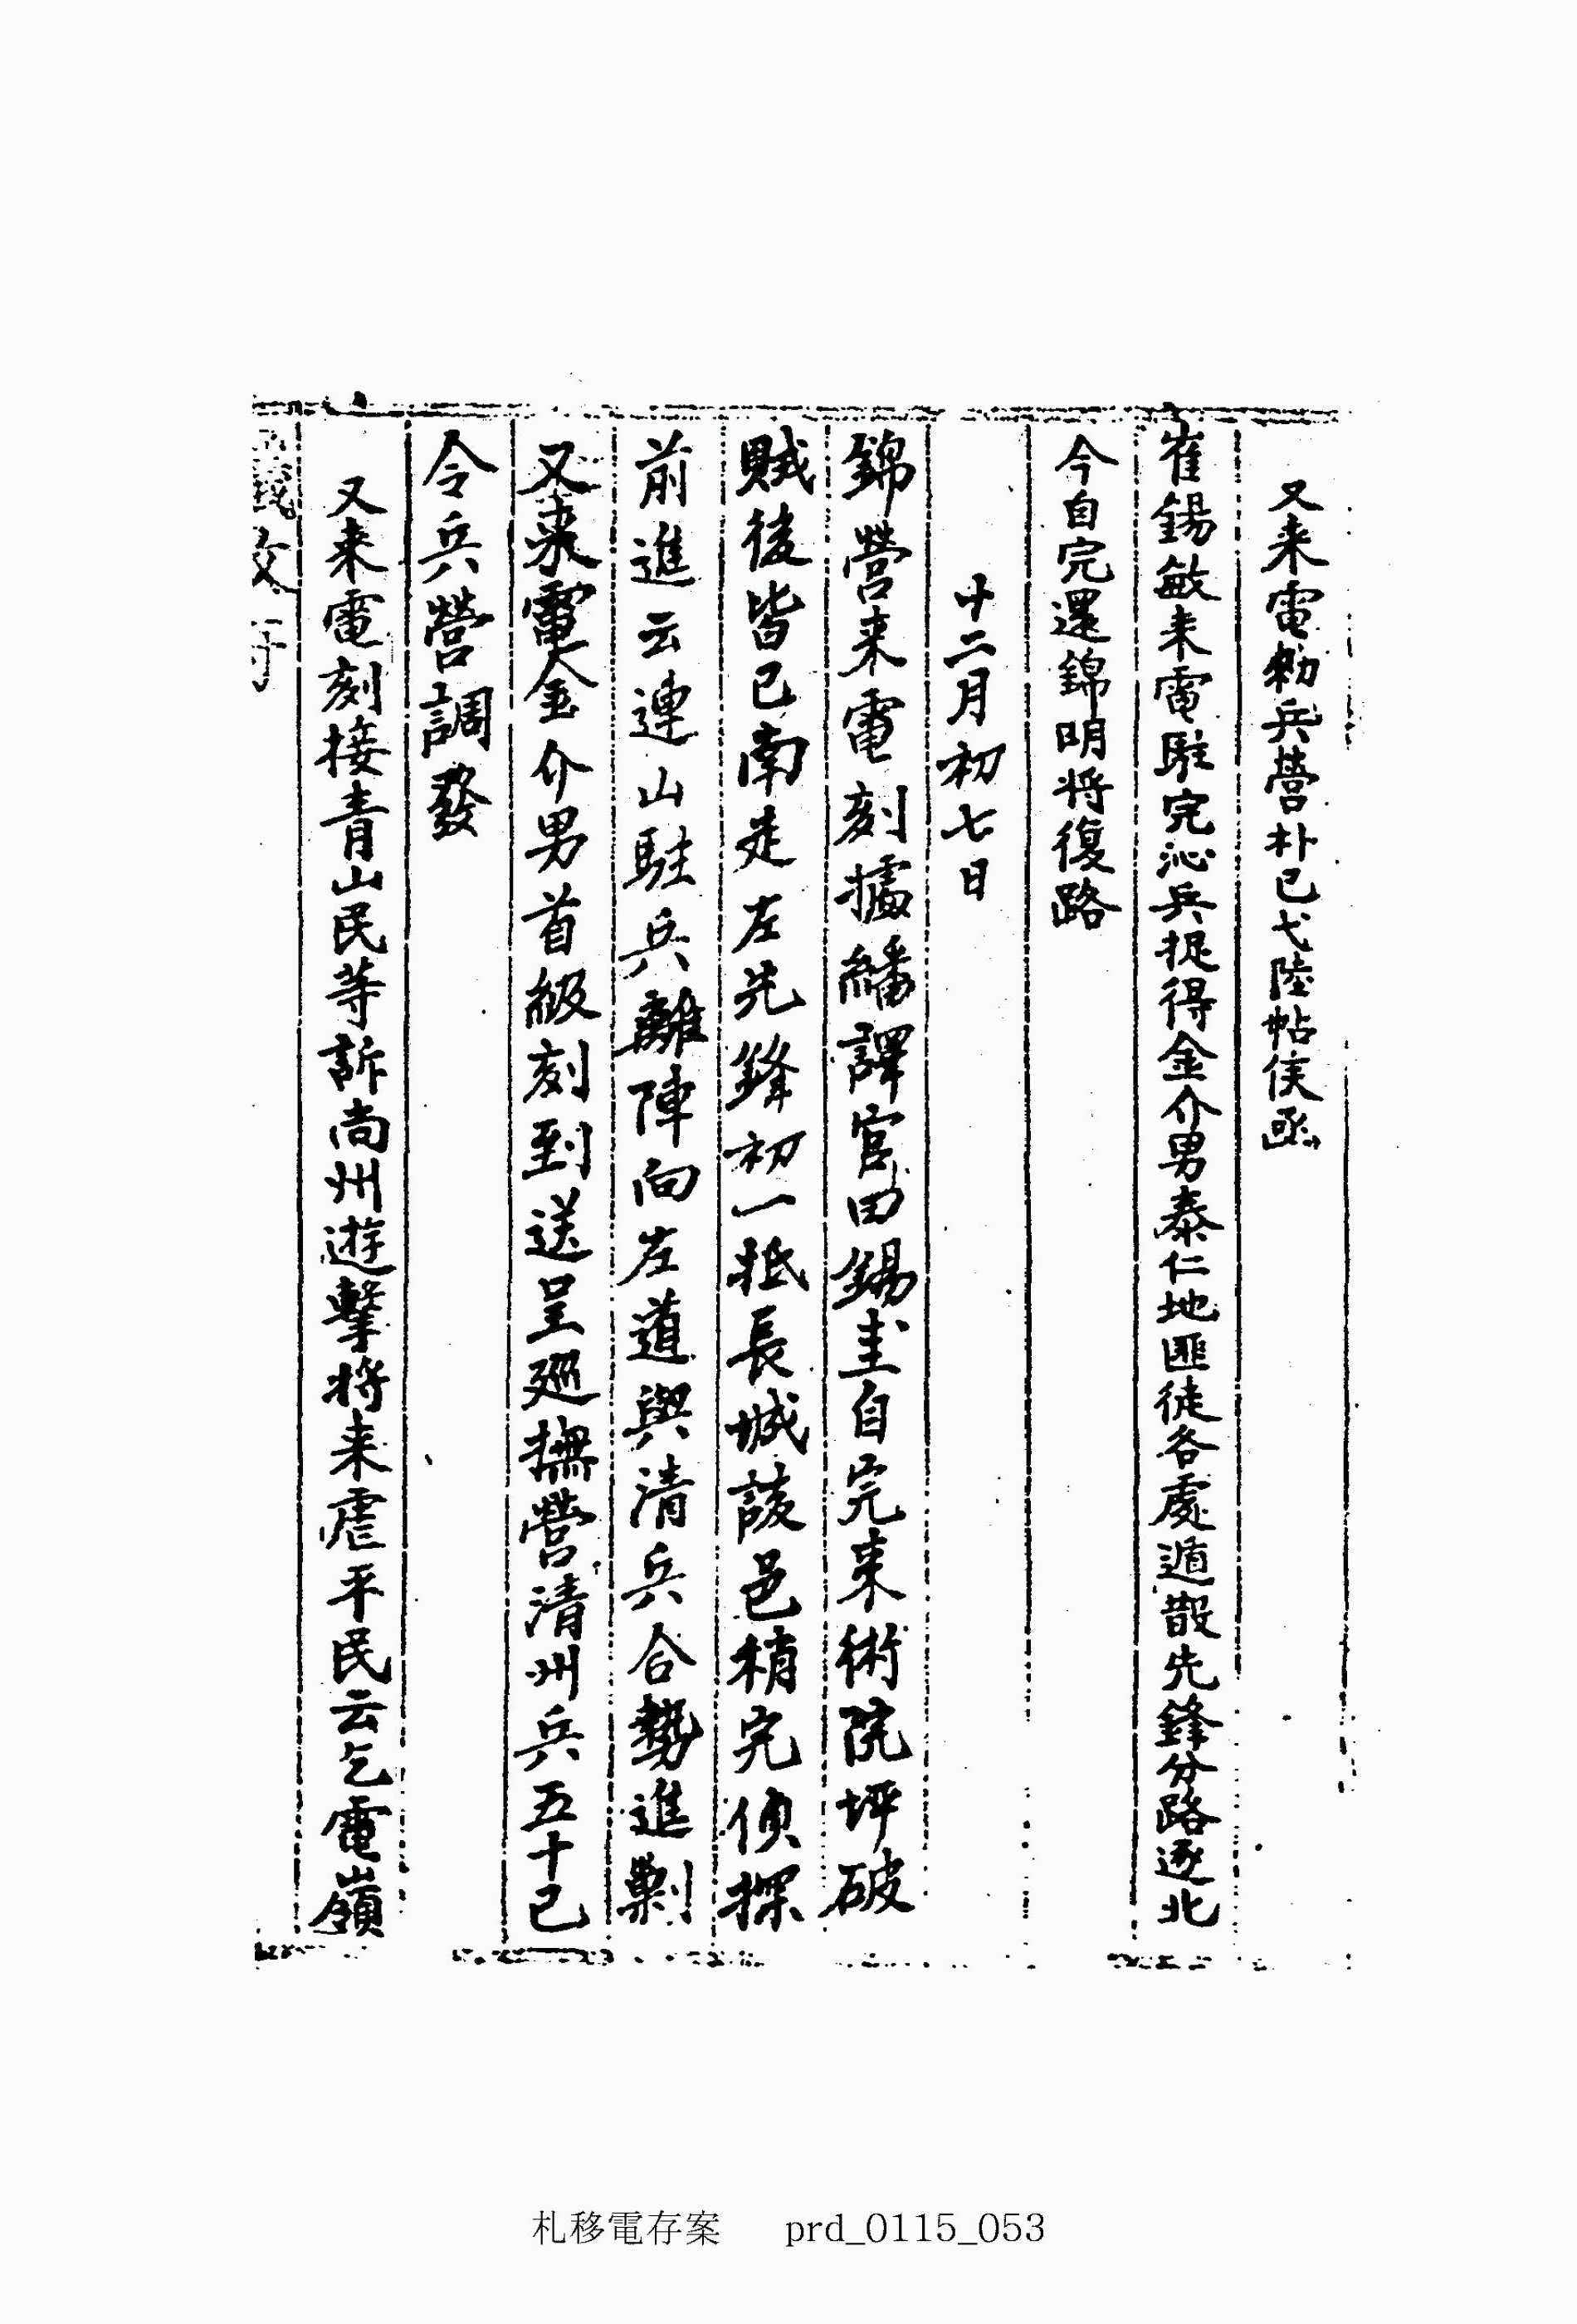 又来電勑兵營朴已弋陸帖俟函
崔錫敏来電駐完沁兵捉得金介男泰仁地匪徒各處遁散先鋒分路逐北
今自完還錦明将復路
十二月初七日
錦營来電刻據繙譯官田錫圭自完来術院坪破
賊後皆已南走左先鋒初一抵長城該邑稍完偵探
前進云連山駐兵離陣向左道與清兵合勢進剿
又来電金介男首級刻到送呈廵撫營清州兵五十已
令兵營調發
又来電刻接青山民等訴尚州遊擊将来虐平民云乞電嶺
札移電存案 prd_0115_053